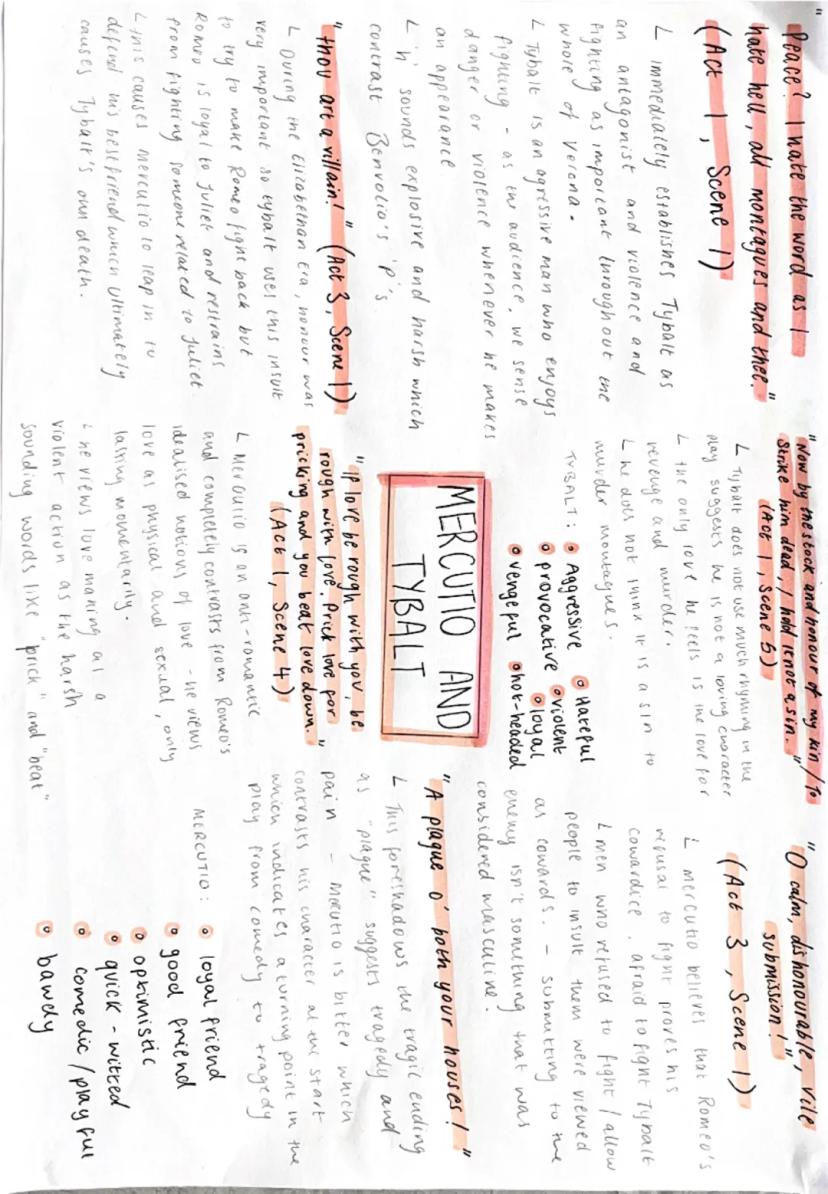 "Peace? I hate the word as I
hate hell, all montagues and thee."
(Act 1, Scene 1)
L immediately establishes Tybalt as
an antagonist and violence and
fighting as important throughout the
whole of Verona.
L Tybalt is an agressive man who enjoys
fighting - as the audience, we sense
danger or violence whenever he makes
an appearance
L 'h' sounds explosive and harsh which
contrast Benvolio's 'p's
"thou art a villain!" (Act 3, Scene 1)
L During the Elizabethan Era, honour was
very important so tybalt uses this insult
to try to make Romeo fight back but
Romeo is loyal to Juliet and restrains
from fighting someone related to Juliet.
L this causes mercutio to leap in to
defend his bestfriend which ultimately
causes Tybalt's own death.
"Now by the stock and honour of my kin / To
strike him dead, I hold it not a sin."
(Act 1, Scene 5)
L Tybalt does not use much rhyming in the
play suggests he is not a loving character
L the only love he feels is the love for
revenge and murder.
L he does not think it is a sin to
murder montagues.
TYBALT: • Aggressive • Hateful
• provocative • violent
• loyal
• vengeful • hot-headed
MERCUTIO AND
TYBALT
"If love be rough with you, be
rough with love. Prick love for
pricking and you beat love down."
(Act 1, Scene 4)
L Mercutio is an anti-romantic
and completely contrasts from Romeo's
idealised notions of love - he views
love as physical and sexual, only
lasting momentarily.
L he views love making as a
violent action as the harsh
sounding words like "prick" and "beat"
"O calm, dishonourable, vile
submission!"
(Act 3, Scene 1)
L mercutio believes that Romeo's
refusal to fight proves his
cowardice, afraid to fight Tybalt
L men who refused to fight / allow
people to insult them were viewed
as cowards. - submitting to the
enemy isn't something that was
considered masculine.
"A plague o' both your houses!"
L This foreshadows the tragic ending
as "plague" suggests tragedy and
pain - Mercutio is bitter which
contrasts his character at the start
which indicates a turning point in the
play from comedy to tragedy
MERCUTIO: • loyal friend
• good friend
• optimistic
• quick-witted
• comedic / playful
• bawdy